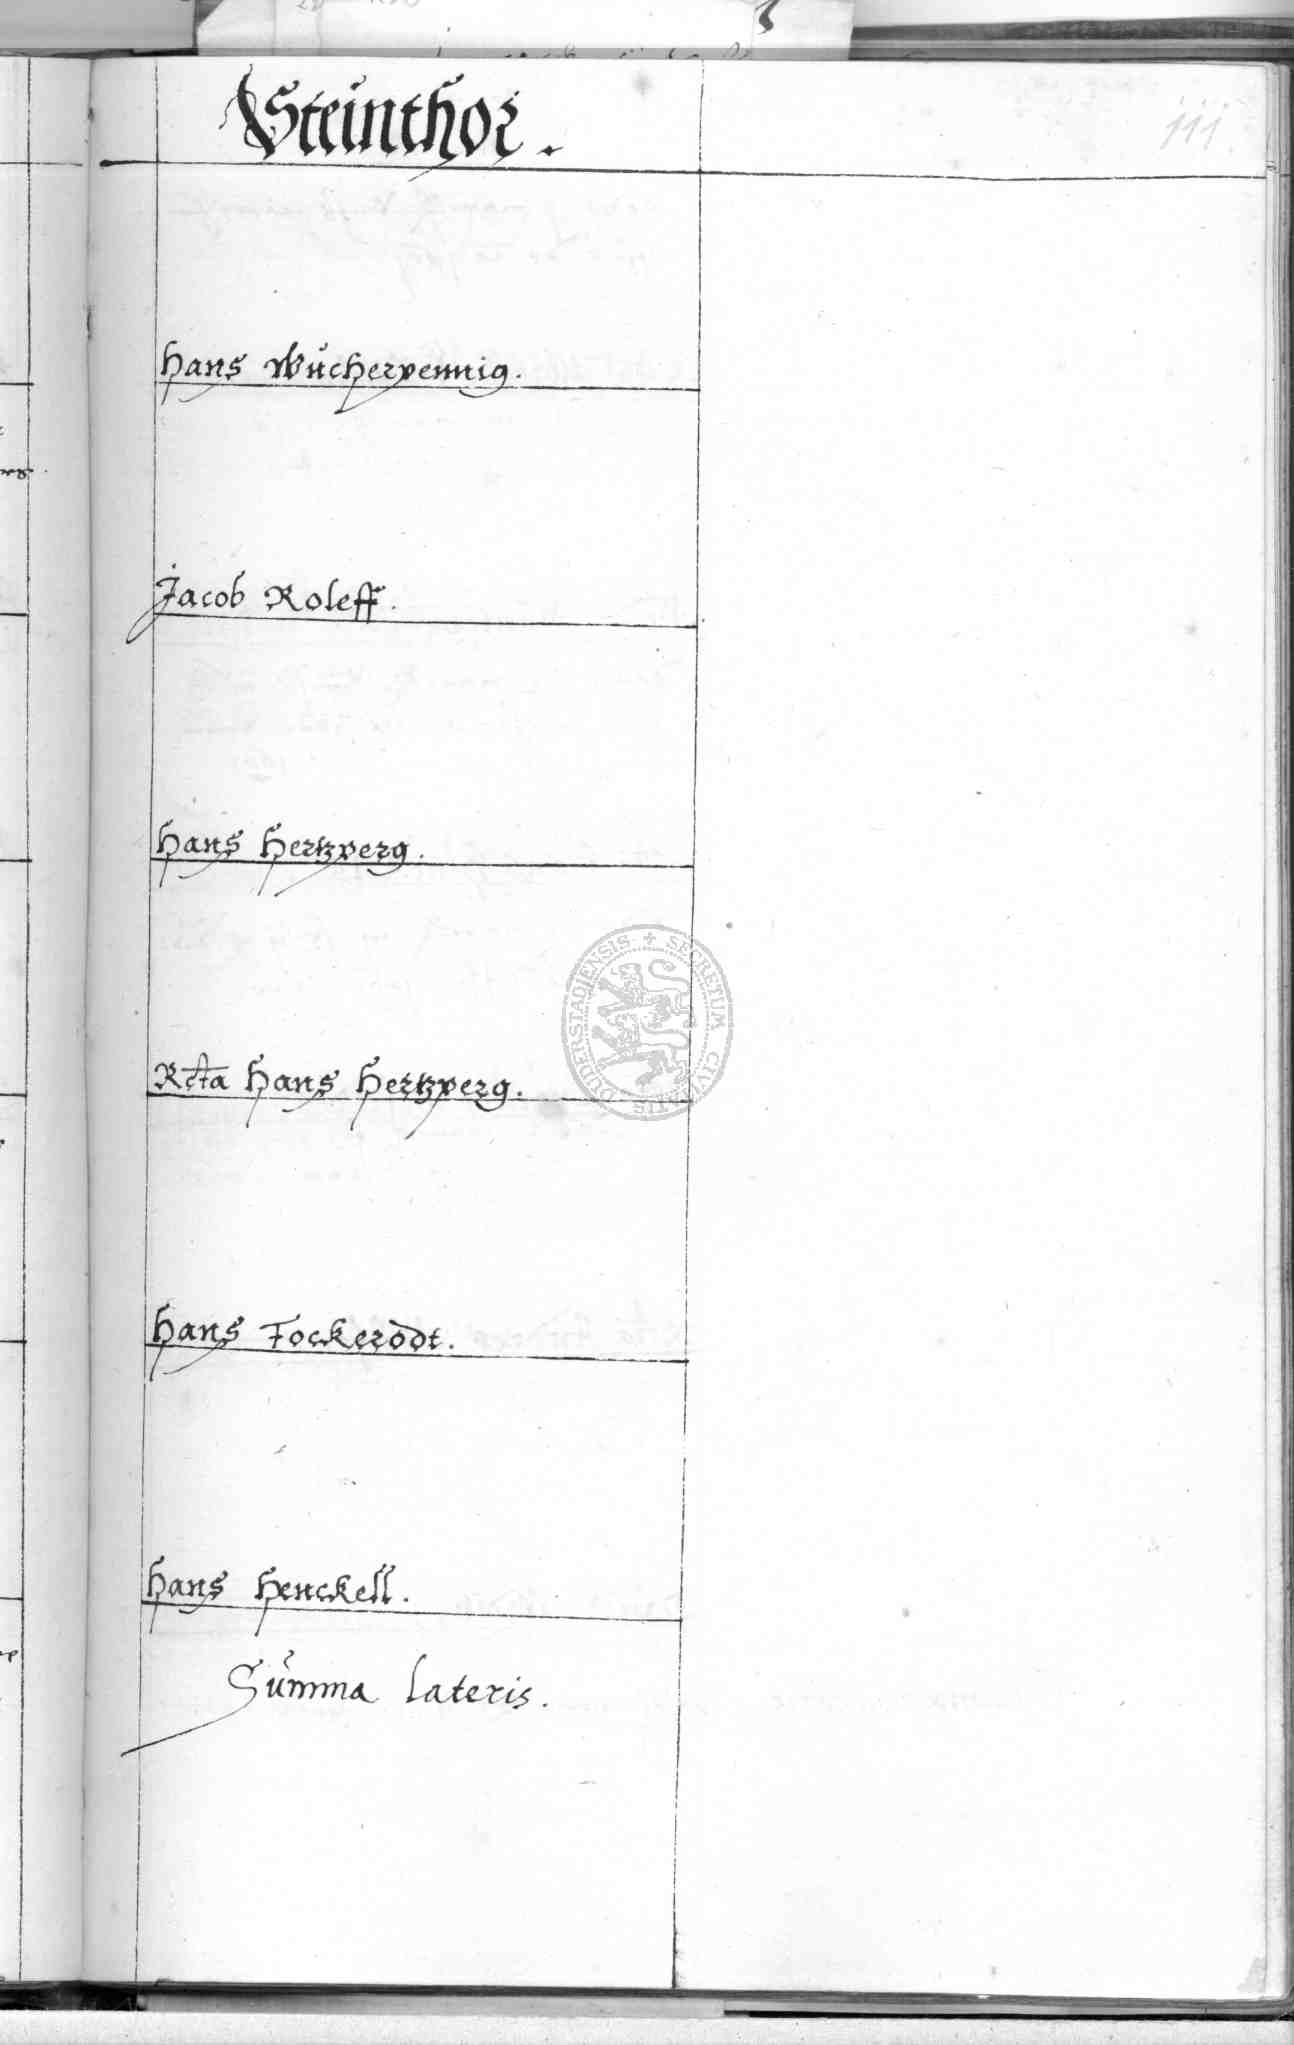 Steinthor.
111
Hans Wucherpennig.
Jacob Roleff.
Hans Hertzperg.
Rcta Hans Hertzperg.
Hans Fockerodt.
Hans Henckell.
Summa lateris.
SECRETUM CIVITATIS DUDERSTADIENSIS